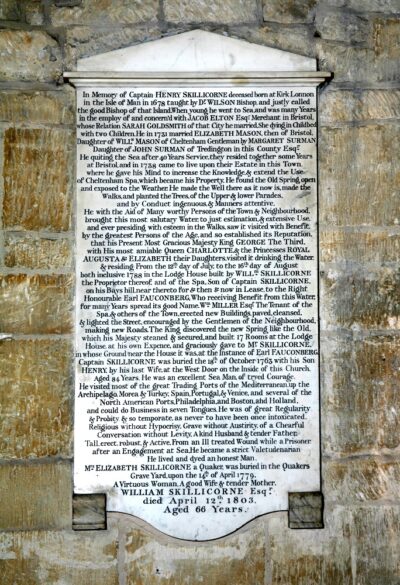 In Memory of Captain HENRY SKILLICORNE deceased born at Kirk Lonnon
in the Isle of Man in 1678 taught by Dr. WILSON Bishop, and justly called
the good Bishop of that Island. When young he went to Sea, and was many Years
in the employ of and concern'd with JACOB ELTON Esqr. Merchant in Bristol,
whose Relation SARAH GOLDSMITH of that City he married. She dying in Childbed
with two Children. He in 1731 married ELIZABETH MASON, then of Bristol,
Daughter of WILLm. MASON of Cheltenham Gentleman by MARGARET SURMAN
Daughter of JOHN SURMAN of Tredington in this County Esqr.
He quiting the Sea after 40 Years Service, they resided together some Years
at Bristol, and in 1738 came to live upon their Estate in this Town,
where he gave his Mind to increase the Knowledge, & extend the Use
of Cheltenham Spa, which became his Property. He found the Old Spring open
and exposed to the Weather. He made the Well there as it now is, made the
Walks, and planted the Trees, of the Upper & lower Parades.
and by Conduct ingenuous, & Manners attentive.
He with the Aid of Many worthy Persons of the Town & Neighbourhood,
brought this most salutary Water, to just estimation, & extensive Use.
and ever presiding with esteem in the Walks, saw it visited with Benefit,
by the greatest Persons of the Age, and so established its Reputation,
that his Present Most Gracious Majesty King GEORGE The Third,
with His most amiable Queen CHARLOTTE, & the Princesses ROYAL
AUGUSTA & ELIZABETH their Daughters, visited it drinking the Water,
& residing From the 12th day of July, to the 16th day of August
both inclusive 1788 in the Lodge House built by WILLm. SKILLICORNE
the Proprietor thereof and of the Spa, Son of Captain SKILLICORNE,
on his Bays hill, near thereto for & then & now in Lease, to the Right
Honourable Earl FAUCONBERG, Who receiving Benefit from this Water,
for many Years spread its good Name. Wm. MILLER Esqr. The Tenant of the
Spa, & others of the Town, erected new Buildings, paved, cleansed,
& lighted the Street, encouraged by the Gentlemen of the Neighbourhood,
making new Roads. The King discovered the new Spring like the Old,
which his Majesty steaned & secured, and built 17 Rooms at the Lodge
House, at his own Expence, and graciously gave to Mr. SKILLICORNE,
in whose Ground near the House it was, at the Instance of Earl FAUCONBERG,
Captain SKILLICORNE was buried the 18th of October 1763 with his Son
HENRY by his last Wife, at the West Door on the Inside of this Church,
Aged 84 Years. He was an excellent Sea Man, of tryed Courage.
He visited most of the great Trading Ports of the Mediterranean, up the
Archipelago, Morea & Turkey, Spain, Portugal, & Venice, and several of the
North American Ports, Philadelphia, and Boston, and Holland,
and could do Business in seven Tongues. He was of great Regularity
& Probity & so temperate, as never to have been once intoxicated.
Religious without Hypocrisy, Grave without Austerity, of a Chearful
Conversation without Levity, A kind Husband & tender Father.
Tall, erect, robust, & Active, From an Ill treated Wound while a Prisoner
after an Engagement at Sea, He became a strict Valetudenarian
He lived and dyed an honest Man.
Mrs. ELIZABETH SKILLICORNE a Quaker, was buried in the Quakers
Grave Yard, upon the 14th of April 1779.
A Virtuous Woman, A good Wife & tender Mother.
WILLIAM SKILLICORNE Esqr.
died April 12th. 1803.
Aged 66 Years.